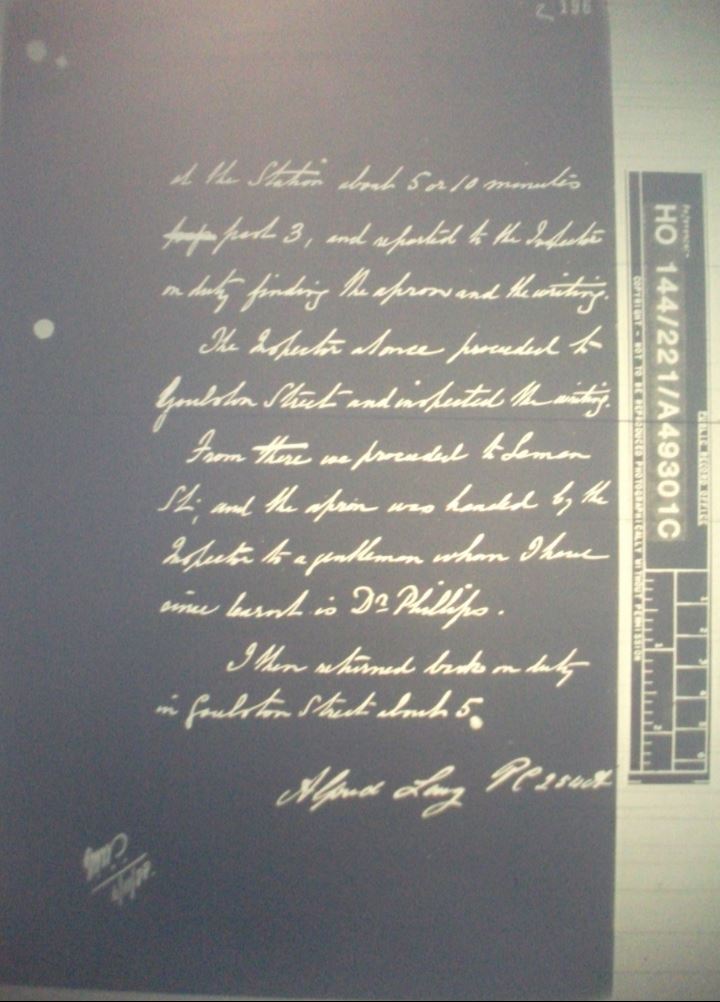 196
at the Station about 5 or 10 minutes
past 3, and reported to the Inspector
on duty finding the apron and the writing.
The Inspector at once proceeded to
Goulston Street and inspected the writing.
From there we proceeded to Leman
St; and the apron was handed by the
Inspector to a gentleman whom I have
since learnt is Dr Phillips.
I then returned back on duty
in Goulston Street about 5.
Alfred Long PC 254A
Reference:-
HO 144/221/A49301C
PUBLIC RECORD OFFICE
COPYRIGHT - NOT TO BE REPRODUCED PHOTOGRAPHICALLY WITHOUT PERMISSION
1 2 3 4 5 6
1 2